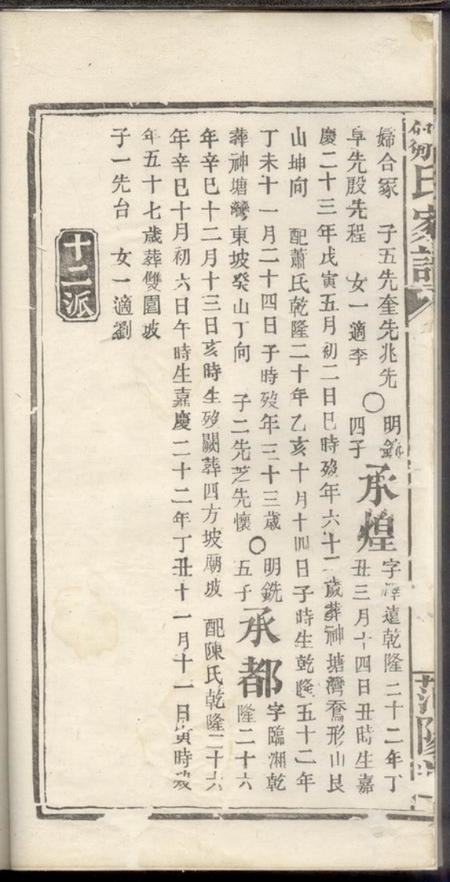 氏家譜
范陽
婦合冢　子五先奎先兆先
阜先殷先程　女一適李　〇
明
四子
承煌
字遠乾隆二十二年丁
丑三月十四日丑時生嘉
慶二十三年戊寅五月初二日巳時歿年六十二歲葬神塘灣喬形山艮
山坤向　配蕭氏乾隆二十年乙亥十月十四日子時生乾隆五十二年
丁未十一月二十四日子時歿年三十三歲　〇
葬神塘灣東坡癸山丁向　子二先芝先懷
明銑
五子
承都
字臨湘乾
隆二十六
年辛巳十二月十三日亥時生歿闕葬四方坡廟坡　配陳氏乾隆二十六
年辛巳十月初六日午時生嘉慶二十二年丁丑十一月十一日寅時歿
年五十七歲葬雙園坡
子一先台　女一適劉
十二派